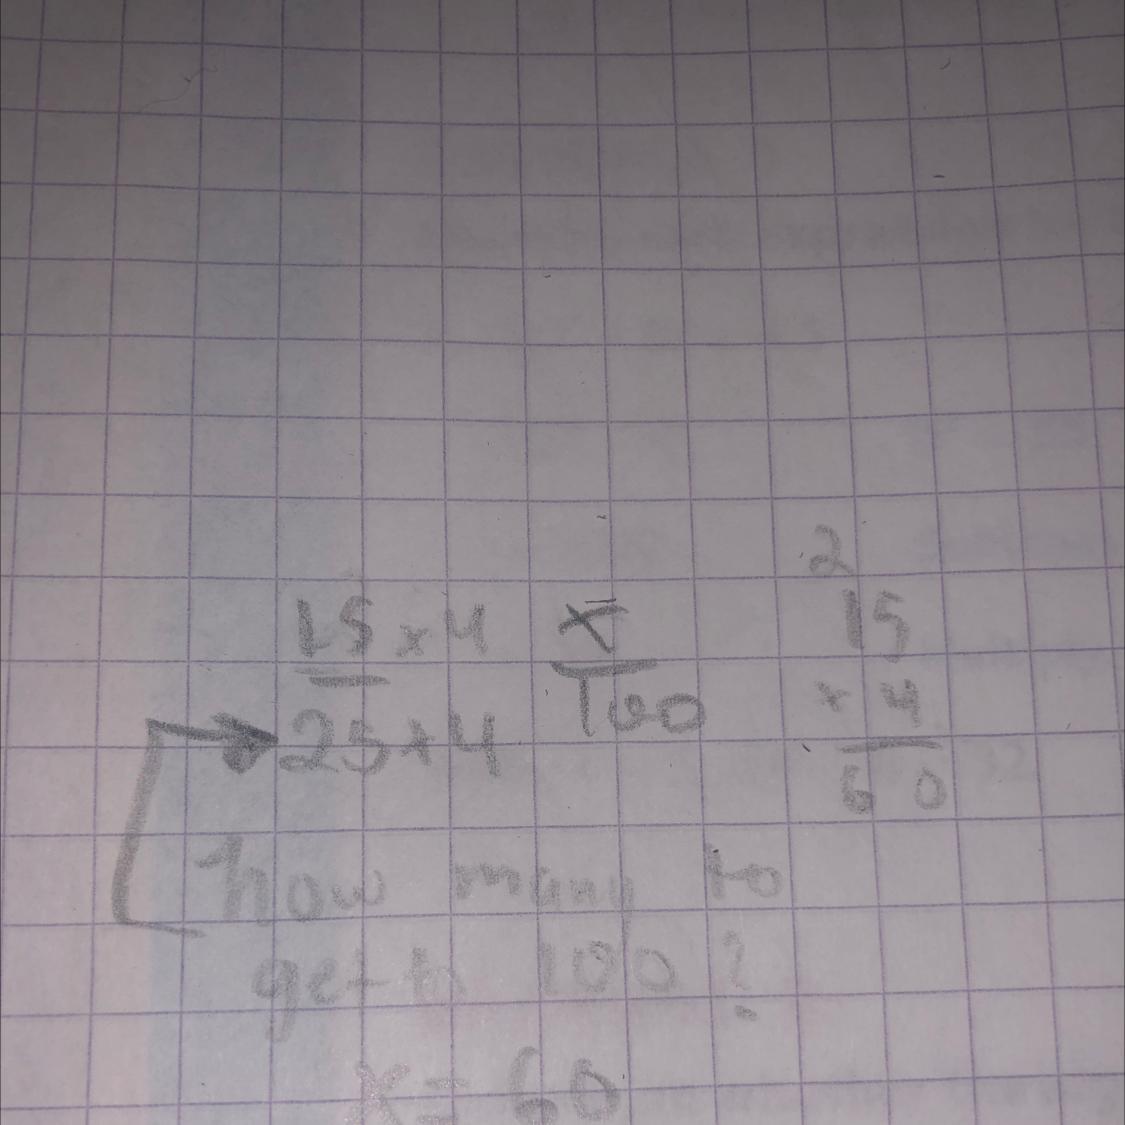 15 x 4
25 x 4
x
100
2
15
x 4
60
how many to
get to 100?
x = 60